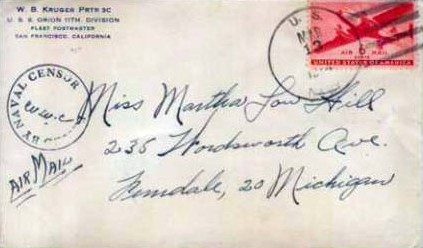 W. B. KRUGER PRTR 3C
U. S. S. ORION 11TH. DIVISION
FLEET POSTMASTER
SAN FRANCISCO, CALIFORNIA
U. S.
MAR
12
AIR MAIL
UNITED STATES OF AMERICA
BY NAVAL CENSOR
W.W.C
AIR MAIL
Miss Martha Lou Hill
235 Wordsworth Ave.
Ferndale, 20 Michigan